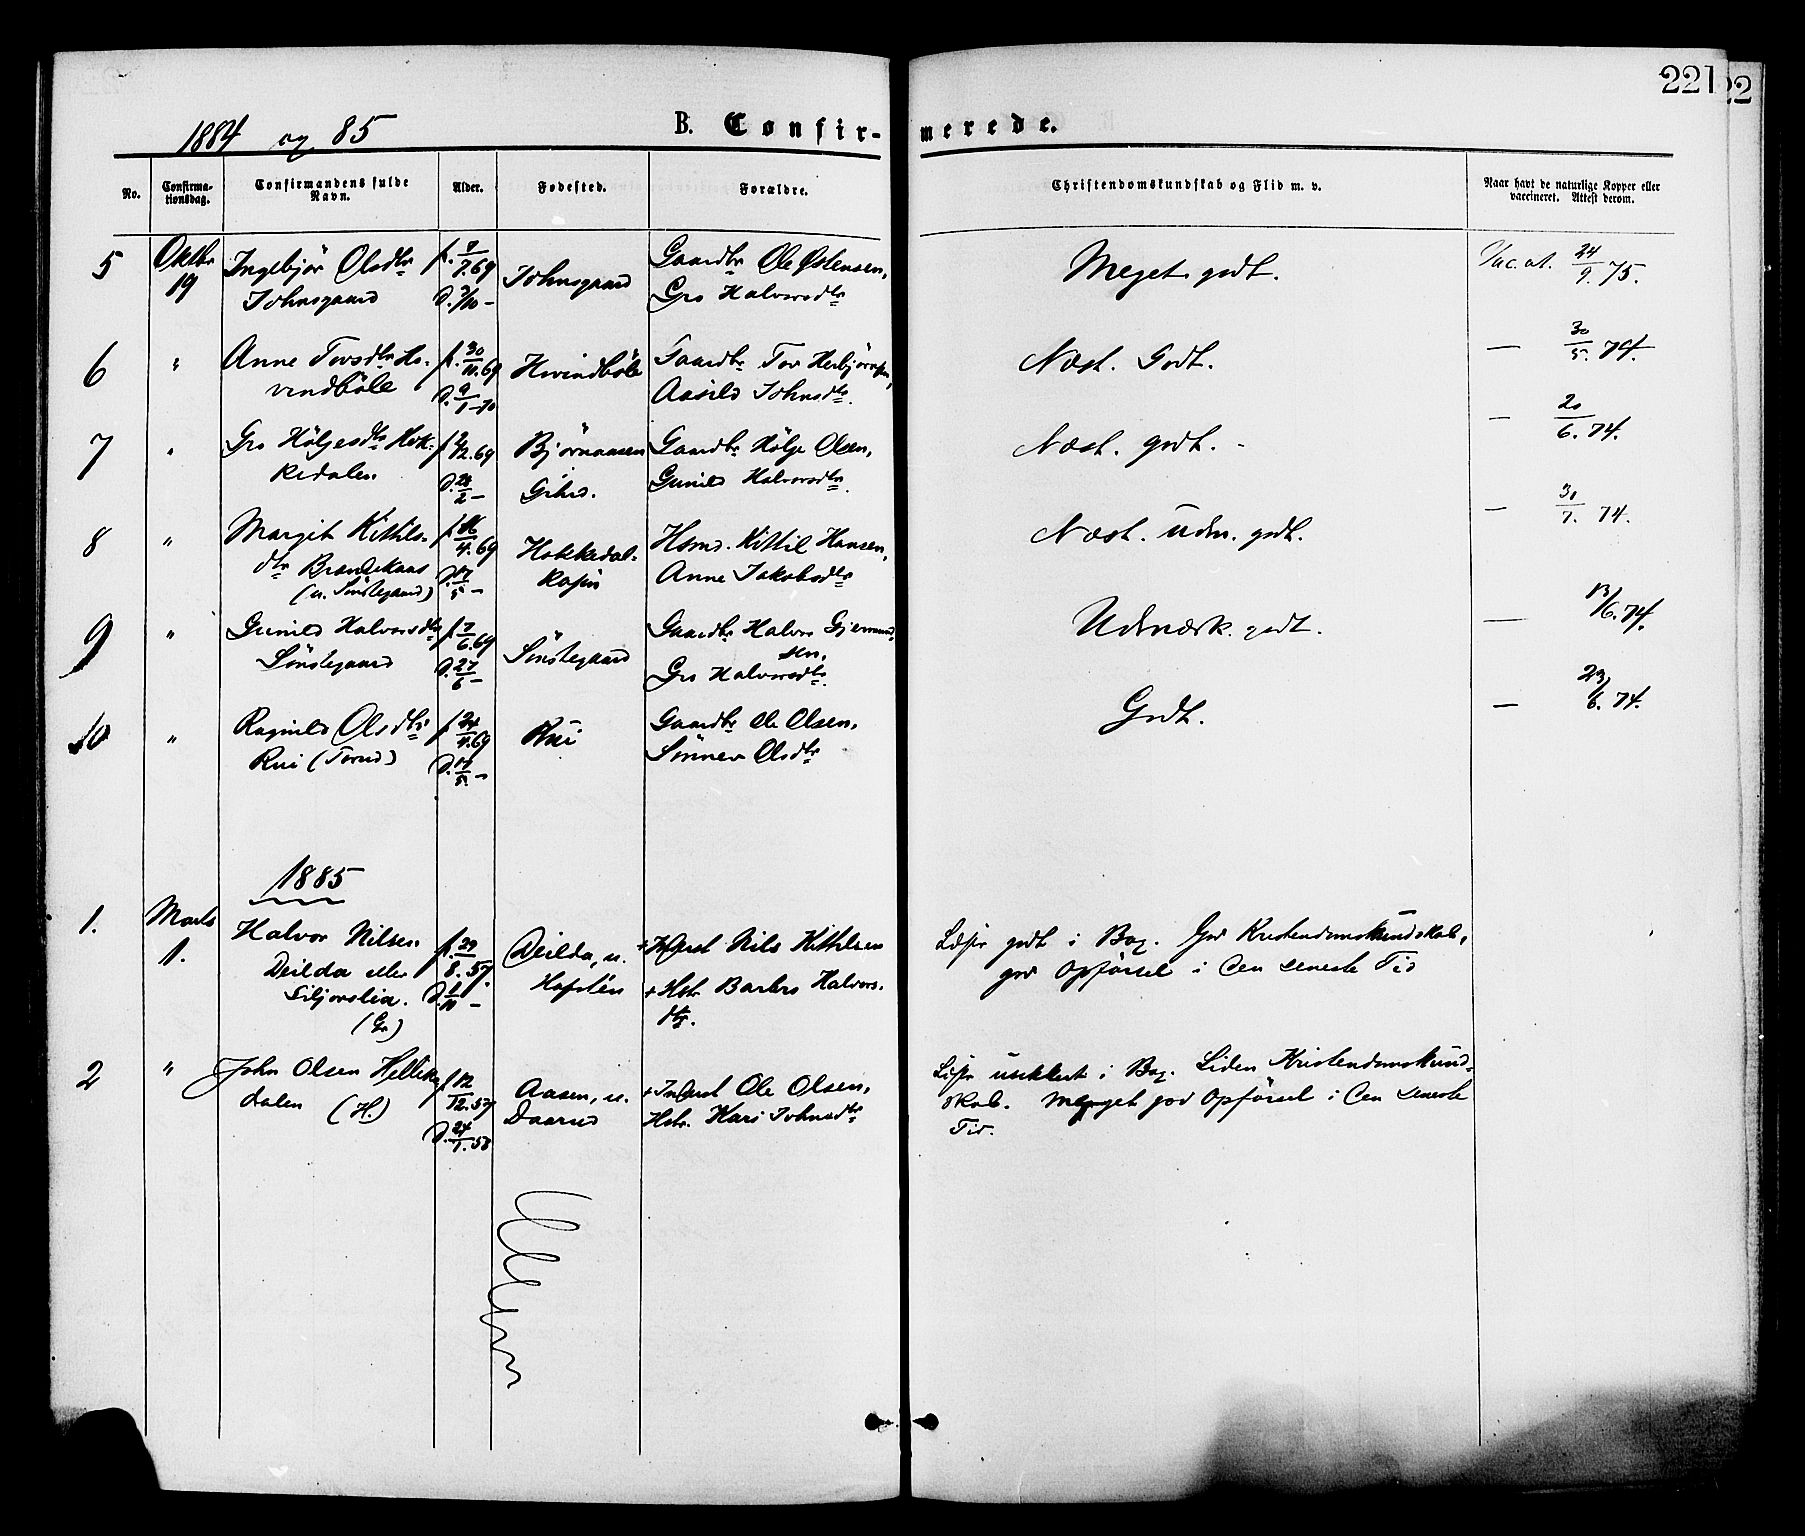 221
22
1884 og 85
B. Confir-
merede.
No.
Confirma-
tionsdag.
Confirmandens fulde
Navn.
Alder.
Fødested.
Forældre.
Christendomskundskab og Flid m. v.
Naar havt de naturlige Kopper eller
vaccineret. Attest derom.
5
Oktbr
19
Ingebjør Olsdtr
Johnsgaard
f. 7/7.69
d. 3/10 –
Johnsgaard
Gaardbr Ole Østensen,
Gro Halvorsdtr
Meget godt.
Vac. at. 24/9. 75.
6
"
Anne Torsdtr Ho-
vindbøle
f. 30/11.69
d. 9/1 – 70
Hovindbøle
Gaardbr Tor Herbjørnsen,
Aasild Johnsdtr.
Næst. Godt.
— 30/5. 74.
7
"
Gro Høljesdtr Hok-
kedalen
f. 2/2.69
d. 28/2 –
Bjørnaasen
Gihus.
Gaardbr Hølje Olsen,
Gunild Halvorsdtr.
Næst. godt. -
— 20/6. 74.
8
"
Margit Kittils-
dtr Brandekaas
(n. Sønstegaard)
f. 16/4.69
d. 17/5 –
Hokkedal-
Kittil Hansen,
Anne Jakobsdtr
Næst. udm. godt.
— 30/7. 74.
9
"
Gunild Halvorsdtr
Sønstegaard
f. 7/6.69
d. 27/6 –
Sønstegaard
Gaardbr Halvor Gjermund-
sen,
Gro Halvorsdtr.
Udmærk. godt.
— 13/6. 74.
10
"
Ragnild Olsdtr
Rui (Torud)
f. 24/4.69
d. 17/5. –
Rui
Gaardbr Ole Olsen,
Sønnev Olsdtr
Godt.
— 23/6. 74.
1885
1.
Marts
1.
Halvor Nilsen
Deilda eller
Siljorslia.
(Gr)
f. 29/8.57.
d. 1/11 –
Deilda, u.
Nils Kittilsen
+ Hstr Barbro Halvors-
dtr.
Læser godt i Bog. God Kristendomskundskab,
god Opførsel i den seneste Tid
2
"
John Olsen Hellik-
dalen (H.)
f. 12/12.57
d. 24/1.58
Aasen, u.
Daarud
Ole Olsen,
Hstr. Kari Johnsdtr
Læser usikkert i Bog. Liden Kristendomskund-
skab. Meget god Opførsel i den seneste
Tid.